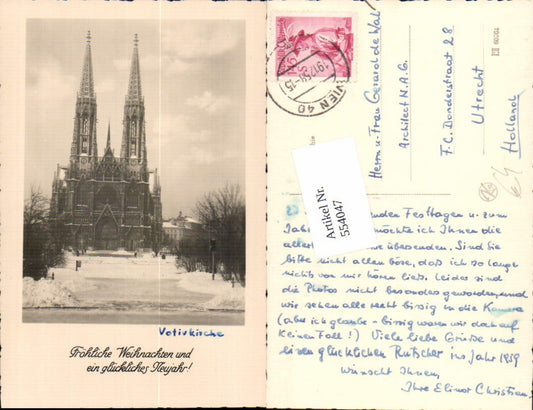 Votivkirche
Fröhliche Weihnachten und
ein glückliches Neujahr!
WIEN 40
Herrn u. Frau Gerard de Wal
Architect N.A.G.
F.C. Donderstraat 28
Utrecht
Holland
Artikel Nr.
554047
den Festtagen u. zum
möchte ich Ihnen die
übersenden. Sind Sie
bitte nicht allen böse, daß ich so lange
nichts von mir hören ließ. Leider sind
die Photos nicht besonders geworden, und
wir sehen alle recht bissig in die Kamera
(aber ich glaube - bissig waren wir doch auf
keinen Fall!) Viele liebe Grüsse und
einen glücklichen Rutscher ins Jahr 1959
wünscht Ihnen,
Ihre Elinor Christian.